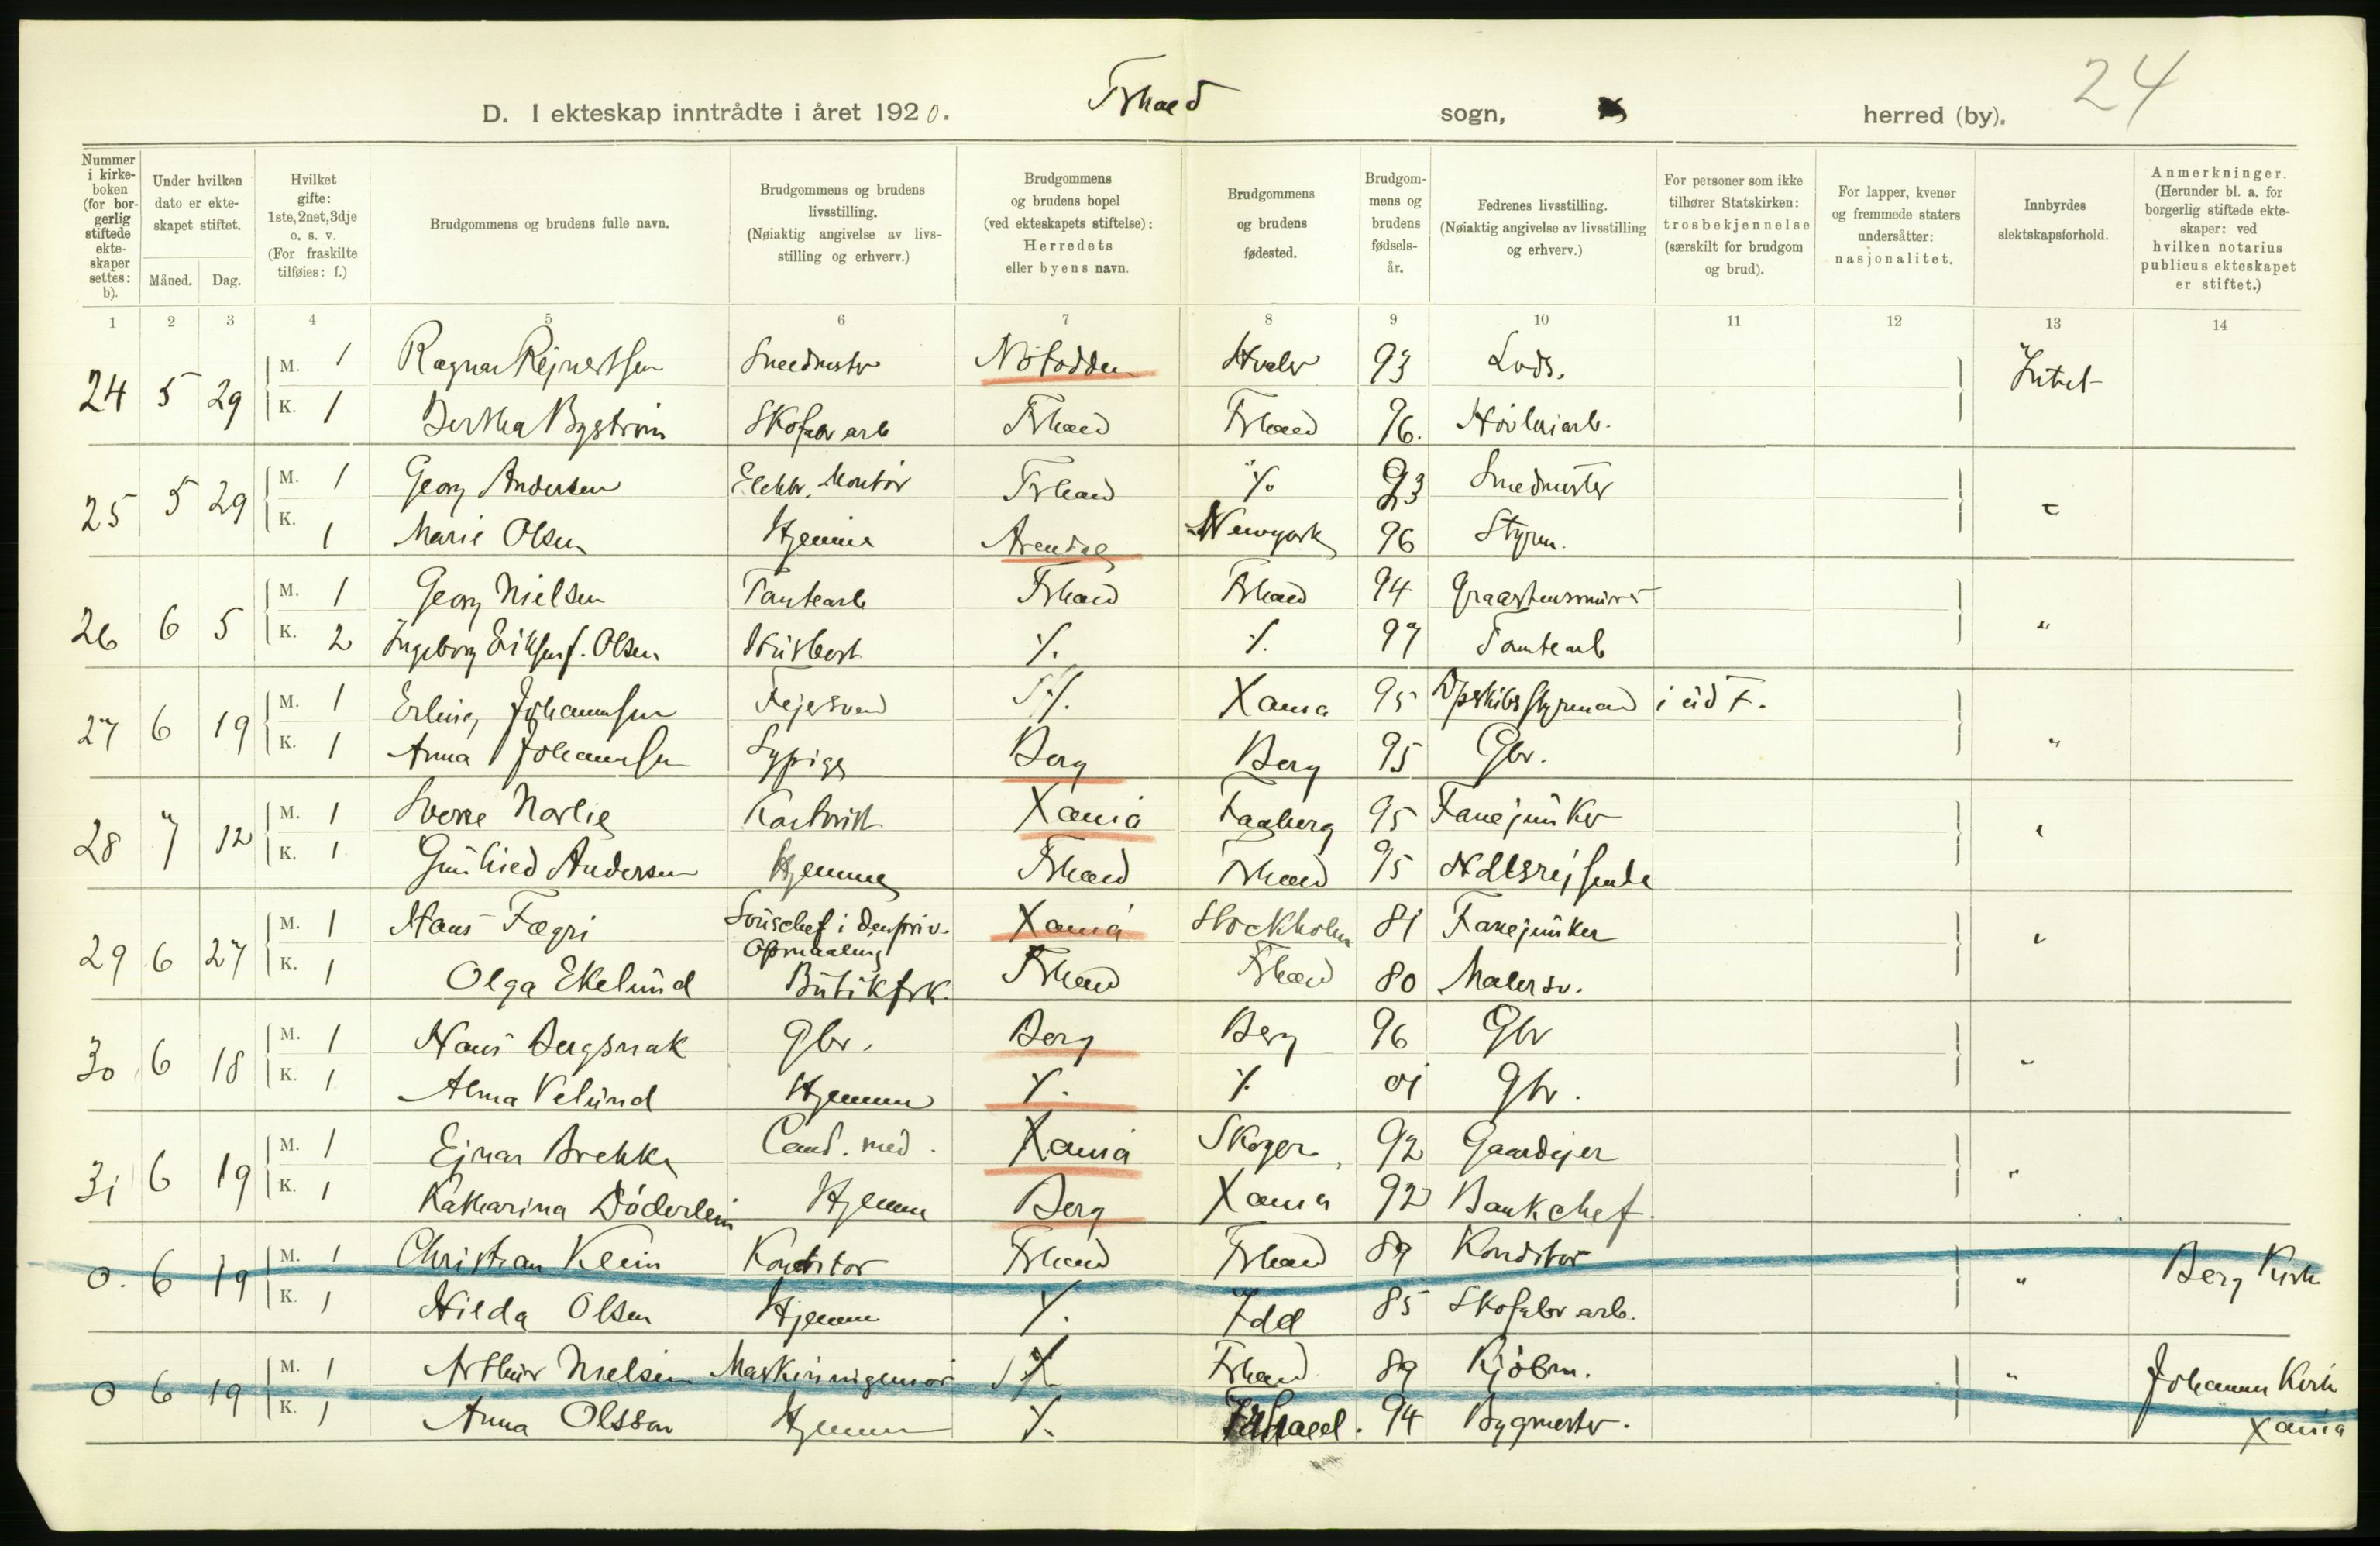 24
D. I ekteskap inntrådte i året 1920. Frhald sogn, herred (by).
Nummer i kirkeboken (for borgerlig stiftede ekteskaper settes: b).
Under hvilken dato er ekteskapet stiftet.
Måned. Dag.
Hvilket gifte: 1ste, 2net, 3dje o. s. v. (For fraskilte tilføies: f.)
Brudgommens og brudens fulle navn.
Brudgommens og brudens livsstilling. (Nøiaktig angivelse av livsstilling og erhverv.)
Brudgommens og brudens bopel (ved ekteskapets stiftelse): Herredets eller byens navn.
Brudgommens og brudens fødested.
Brudgommens og brudens fødselsår.
Fedrenes livsstilling. (Nøiaktig angivelse av livsstilling og erhverv.)
For personer som ikke tilhører Statskirken: trosbekjennelse (særskilt for brudgom og brud).
For lapper, kvener og fremmede staters undersåtter: nasjonalitet.
Innbyrdes slektskapsforhold.
Anmerkninger. (Herunder bl. a. for borgerlig stiftede ekteskaper: ved hvilken notarius publicus ekteskapet er stiftet.)
1 2 3 4 5 6 7 8 9 10 11 12 13 14
24 5 29 M. 1 Ragnar Rejnertsen Smedmstr Notodden Hvaler 93 Lods. Intet
K. 1 Bertha Bystrøm Skofabr arb Frhald Frhald 96. Høvleriarb.
25 5 29 M. 1 Georg Andersen Elektr. Montør Frhald ./. 93 Smedmester "
K. 1 Marie Olsen Hjemme Arendal Newyork 96 Styrm.
26 6 5 M. 1 Georg Nielsen Tomtearb Frhald Frhald 94 Graastensmurer "
K. 2 Ingeborg Eriksen f. Olsen Husbest ./. ./. 97 Tomtearb
27 6 19 M. 1 Erling Johannsen Fejersvend ./. Xania 95 Opskibsstyrmand i ud F. "
K. 1 Anna Johannsen Sypige Berg Berg 95 Gbr.
28 7 12 M. 1 Sverre Norlie Kontorist Xania Faaberg 95 Fanejunker "
K. 1 Gunhild Andersen Hjemme Frhald Frhald 95 Hdlsrejsende
29 6 27 M. 1 Hans Fægri Souschef i den priv. Opmaaling Xania Stockholm 81 Fanejunker "
K. 1 Olga Ekelund Butikfrk. Frhald Frhald 80 Malersv.
30 6 18 M. 1 Hans Bergsmak Gbr. Berg Berg 96 Gbr "
K. 1 Alma Velund Hjemme ./. ./. 01 Gbr.
31 6 19 M. 1 Ejnar Brekke Cand. med. Xania Skoger 92 Gaardejer "
K. 1 Katharina Döderlein Hjemme Berg Xania 92 Bankchef.
0. 6 19 M. 1 Christian Klein Konditor Frhald Frhald 89 Konditor " Berg Kirke
K. 1 Hilda Olsen Hjemme ./. Idd 85 Skofabr arb.
0 6 19 M. 1 Arthur Nielsen Maskiningeniør ./. Frhald 89 Kjøbm. " Johannes Kirke
K. 1 Anna Olsson Hjemme ./. Frhald. 94 Bygmester. Xania